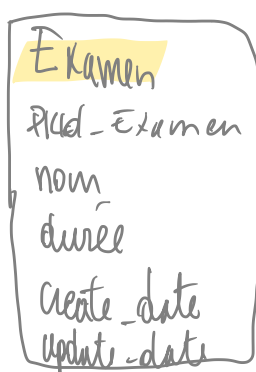 Examen
PKid_Examen
nom
durée
create_date
update_date